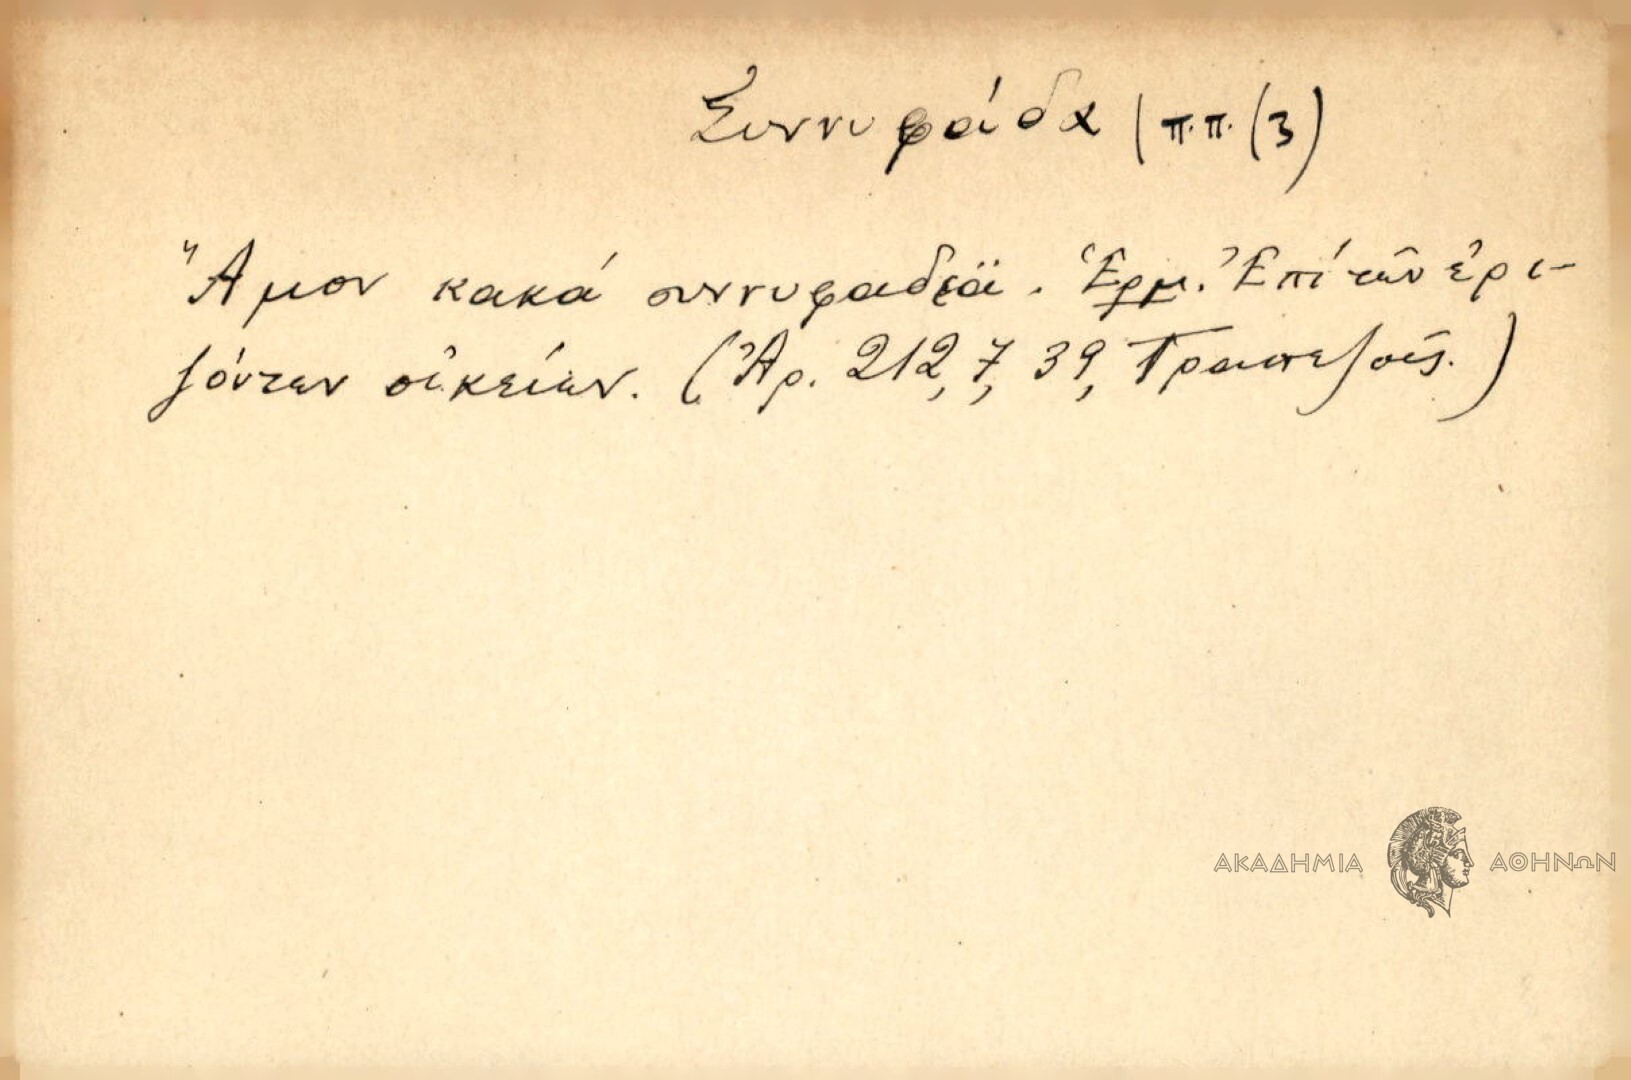 Συννυφάδα (π.π. (3)
Ἄμον κακά συννυφαδεͅä. Ἑρμ. Ἐπί τῶν ἐρι-
ζόντων οἰκείων. (Ἀρ. 212, 7, 39, Τραπεζοῦς.)
ΑΚΑΔΗΜΙΑ ΑΘΗΝΩΝ